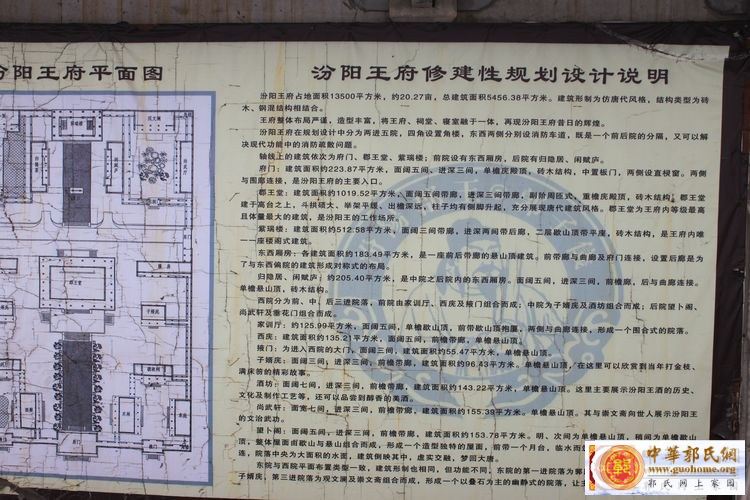 汾阳王府平面图
汾阳王府修建性规划设计说明
汾阳王府占地面积13500平方米，约20.27亩，总建筑面积5456.38平方米。建筑形制为仿唐代风格，结构类型为砖
木、钢混结构相结合。
王府整体布局严谨，造型丰富，将王府、祠堂、寝室融于一体，再现汾阳王府昔日的辉煌。
汾阳王府在规划设计中分为两进五院，四角设置角楼，东西两侧分别设消防车道，既是一个前后院的分隔，又可以解
决现代功能中的消防疏散问题。
轴线上的建筑依次为府门、郡王堂、紫瑞楼；前院设有东西厢房，后院有归隐居、闲赋庐。
府门：建筑面积约223.87平方米，面阔五间、进深三间，单檐庑殿顶，砖木结构，中置板门，两侧设直棂窗。两侧
与围廊连接，是汾阳王府的主要入口。
郡王堂：建筑面积约1019.52平方米，面阔五间带廊，进深三间带廊，副阶周匝式，重檐庑殿顶，砖木结构，郡王堂
建于高台之上，斗拱硕大、举架平缓、出檐深远，柱子均有侧脚升起，充分展现唐代建筑风格。郡王堂为王府内等级最高
且体量最大的建筑，是汾阳王的工作场所。
紫瑞楼：建筑面积约512.58平方米，面阔三间带廊，进深两间带后廊，二层歇山顶带平座，砖木结构，是王府内唯
一一座楼阁式建筑。
东西厢房：各建筑面积约183.49平方米，是一座前后带廊的悬山顶建筑。前带廊与曲廊及府门连接，设置后廊是为
了与东西偏院的建筑形成对称式的布局。
归隐居、闲赋庐：约205.40平方米，是中院之后院内的东西厢房。面阔五间，进深三间，前檐带廊，后与曲廊连接。
单檐悬山顶，砖木结构。
西院分为前、中、后三进院落，前院由家训厅、西庑及掖门组合而成；中院为子婿庆及酒坊组合而成；后院望卜阁、
尚武轩及垂花门组合而成。
家训厅：约125.99平方米，面阔五间，单檐歇山顶，前带歇山顶抱厦，两侧与曲廊连接，形成一个围合式的院落。
西庑：建筑面积约135.21平方米，面阔五间，前檐带廊，单檐悬山顶。
掖门：为进入西院的大门，面阔三间，建筑面积约55.47平方米，单檐悬山顶。
子婿庆：面阔三间，进深三间，前檐带廊，建筑面积约96.43平方米，单檐悬山顶，在这里可以欣赏到当年打金枝、
满床笏的精彩故事。
酒坊：面阔七间，进深三间，前檐带廊，建筑面积约143.22平方米，单檐悬山顶。这里主要展示汾阳王酒的历史、
文化及制作工艺等，还可以品尝到醇香的美酒。
尚武轩：面宽七间，进深三间，前檐带廊，建筑面积约155.39平方米，单檐悬山顶。其与崇文斋向世人展示汾阳王
的文治武功。
望卜阁：面阔五间，进深三间，前檐带廊，建筑面积约153.78平方米。明、次间为单檐悬山顶，稍间为单檐歇山
顶，整体屋面由歇山与悬山组合而成，形成一个造型独特的屋面，前带一个月台，临水而
连，院落中央为大面积的水面，建筑倒映其中，虚实交融，梦回大唐。
东院与西院平面布置类型一致，建筑形制也相同，但功能不同，东院的第一进院落为
子婿庆，第三进院落为观文澜及崇文斋组合而成，形成一个以叠石为主的幽静式的院落，让
郡王堂
中華郭氏網
www.guohome.org
郭氏网上家园